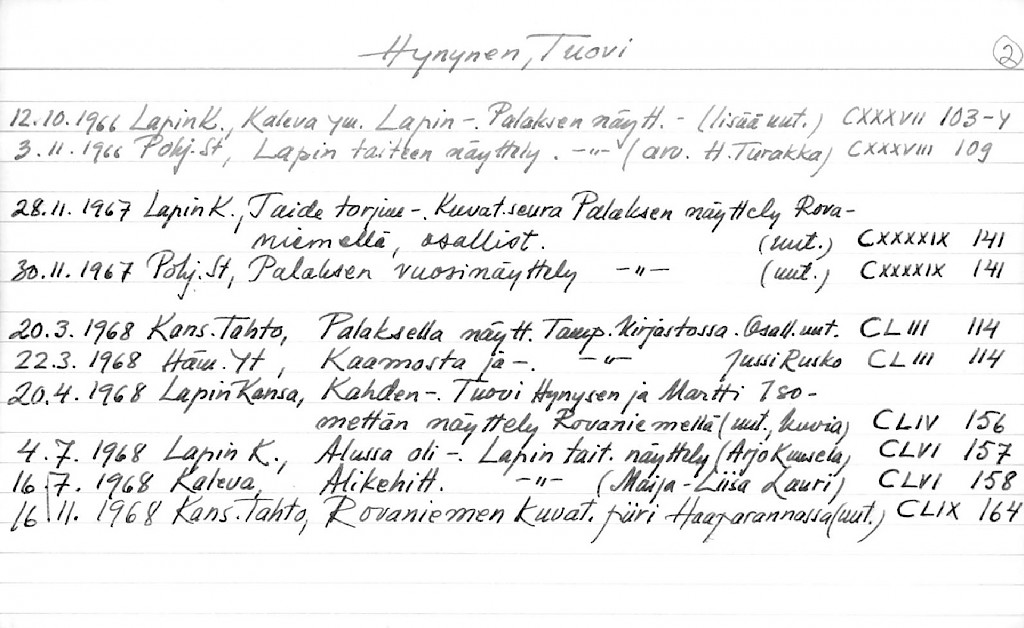 Hynynen, Tuovi 2
12.10.1966 Lapin K., Kaleva ym. Lapin -. Palaksen näytt. - (lisää uut.) CXXXVII 103-4
3.11.1966 Pohj.St, Lapin taiteen näyttely. -"- (arv. H.Turakka) CXXXVIII 109
28.11.1967 Lapin K., Taide torjuu -. Kuvat.seura Palaksen näyttely Rova-
niemellä, osalliot. (uut.) CXXXXIX 141
30.11.1967 Pohj.St, Palaksen vuosinäyttely -"- (uut.) CXXXXIX 141
20.3.1968 Kans.Tahto, Palaksella näytt. Tamp. kirjastossa. Osall. uut. CLIII 114
22.3.1968 Häm.Yt, Kaamosta ja -. -"- Jussi Rusko CLIII 114
20.4.1968 Lapin Kansa, Kahden -. Tuovi Hynysen ja Martti Iso-
mettän näyttely Rovaniemellä (uut., kuvia) CLIV 156
4.7.1968 Lapin K., Alussa oli -. Lapin tait. näyttely (Arjo Kuusela) CLVI 157
16.7.1968 Kaleva, Alikehitt. -"- (Maija-Liisa Lauri) CLVI 158
16.11.1968 Kans.Tahto, Rovaniemen Kuvat. piiri Haaparannassa (uut.) CLIX 164